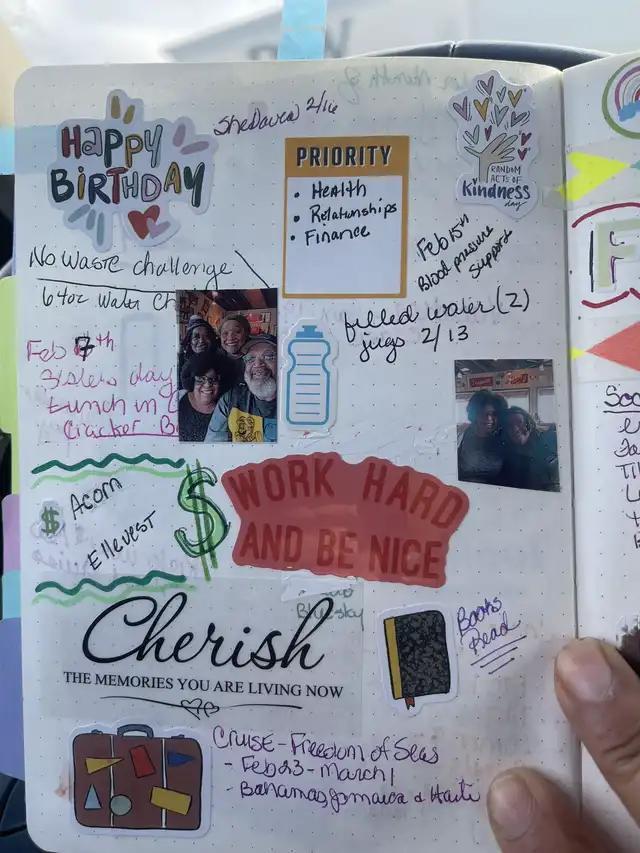 HAPPY
BIRTHDAY
2/16
PRIORITY
• Health
• Relationships
• Finance
RANDOM
ACTS OF
Kindness
day
Feb 15th
Blood pressure
support
No waste challenge
64oz Water Ch
filled water (2)
jugs 2/13
Feb 7th
Sisters day
Lunch in
Cracker B
$
Acorn
Ellevest
$
WORK HARD
AND BE NICE
Bluesky
Cherish
THE MEMORIES YOU ARE LIVING NOW
Books
Read
Cruise - Freedom of Seas
- Feb 23 - March 1
- Bahamas, Jamaica & Haiti
F
Soc